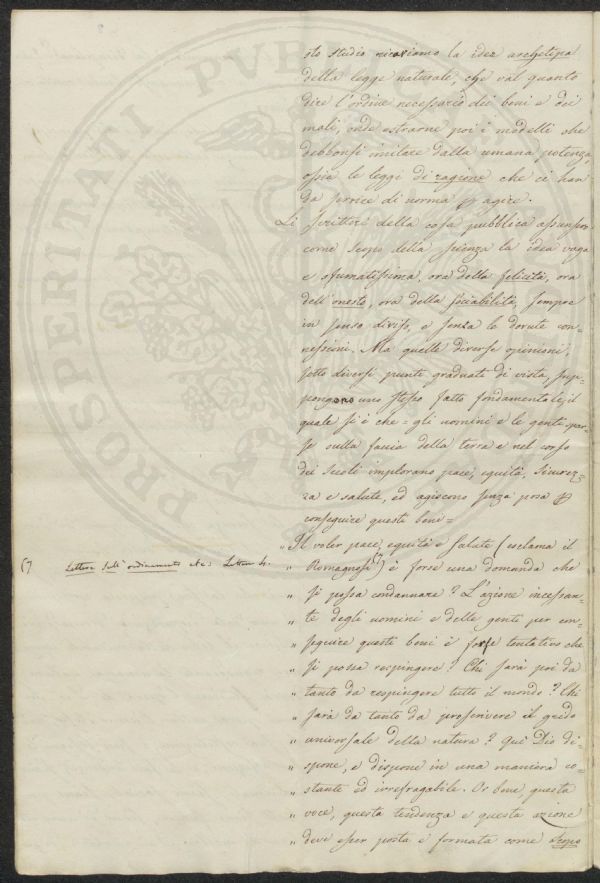 sto studio ricaviamo la idea archetipa
della legge naturale, che val quanto
dire l'ordine necessario dei beni e dei
mali, onde estrarne poi i modelli che
debbonsi imitare dalla umana potenza,
ossia le leggi di ragione che ci han
da servire di norma p agire.
Li scrittori della cosa pubblica assunsero
come scopo della scienza la idea vaga
e sfumatissima, ora della felicità, ora
dell'onesto, ora della sociabilità, sempre
in senso diviso, e senza le dovute con=
nessioni. Ma quelle diverse opinioni,
sotto diversi punti graduati di vista, sup=
pongono uno stesso fatto fondamentale, il
quale si è che = gli uomini e le genti spar=
se sulla faccia della terra e nel corso
dei secoli implorano pace, equità, sicurez=
za e salute, ed agiscono senza posa p
conseguire questi beni =
" Il voler pace, equità e salute (esclama il
(7 Lettere sull'ordinamento ec: Lettera 4.
" Romagnosi (7) è forse una domanda che
" si possa condannare? L'azione incessan=
" te degli uomini e delle genti per con=
" seguire questi beni è forse tentativo che
" si possa respingere? Chi sarà poi da
" tanto da respingere tutto il mondo? Chi
" sarà da tanto da proscrivere il grido
" universale della natura? Qui Dio di=
" spone, e dispone in una maniera co=
" stante ed irrefragabile. Or bene, questa
" voce, questa tendenza e questa azione
" deve esser posta e formata come scopo
PROSPERITATI PVBLICAE